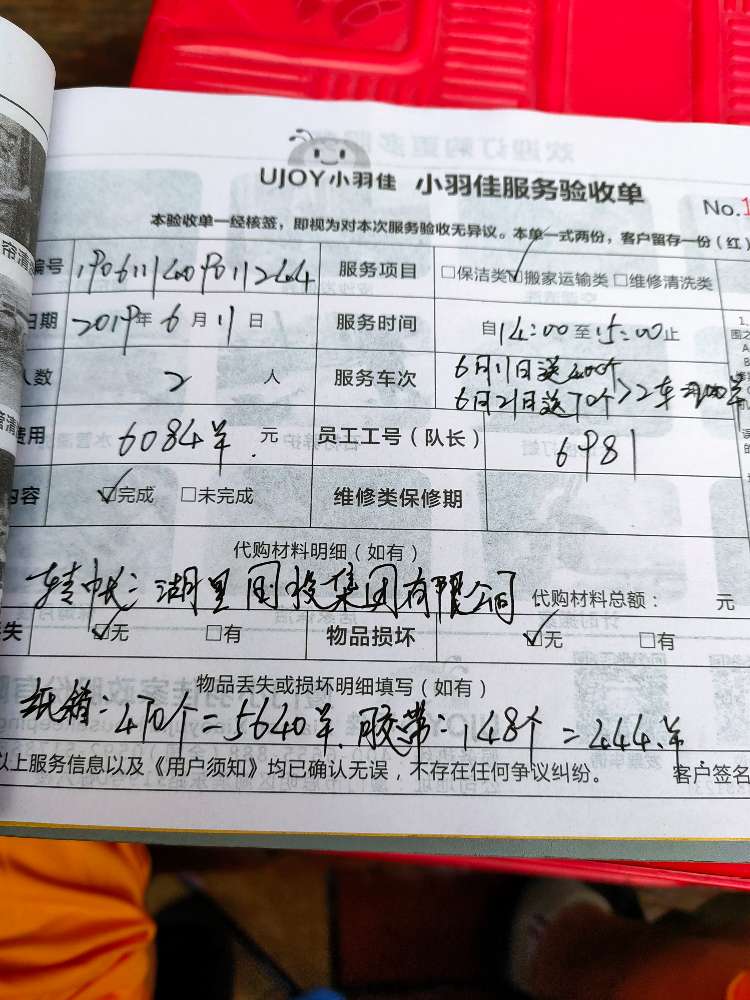 UJOY小羽佳 小羽佳服务验收单
No.1
本验收单一经核签，即视为对本次服务验收无异议。本单一式两份，客户留存一份（红）
编号 服务项目 □保洁类☑搬家运输类□维修清洗类
日期 2019年6月11日 服务时间 自14:00至15:00止
人数 2 人 服务车次 6月11日送400个
6月21日送70个>2车
费用 6084羊 元 员工工号（队长） 6981
内容 ☑完成 □未完成 维修类保修期
代购材料明细（如有）
转帐：湖里国投集团有限公司 代购材料总额： 元
丢失 ☑无 □有 物品损坏 ☑无 □有
物品丢失或损坏明细填写（如有）
纸箱：470个=5640羊. 胶带：148个=444.羊
以上服务信息以及《用户须知》均已确认无误，不存在任何争议纠纷。 客户签名